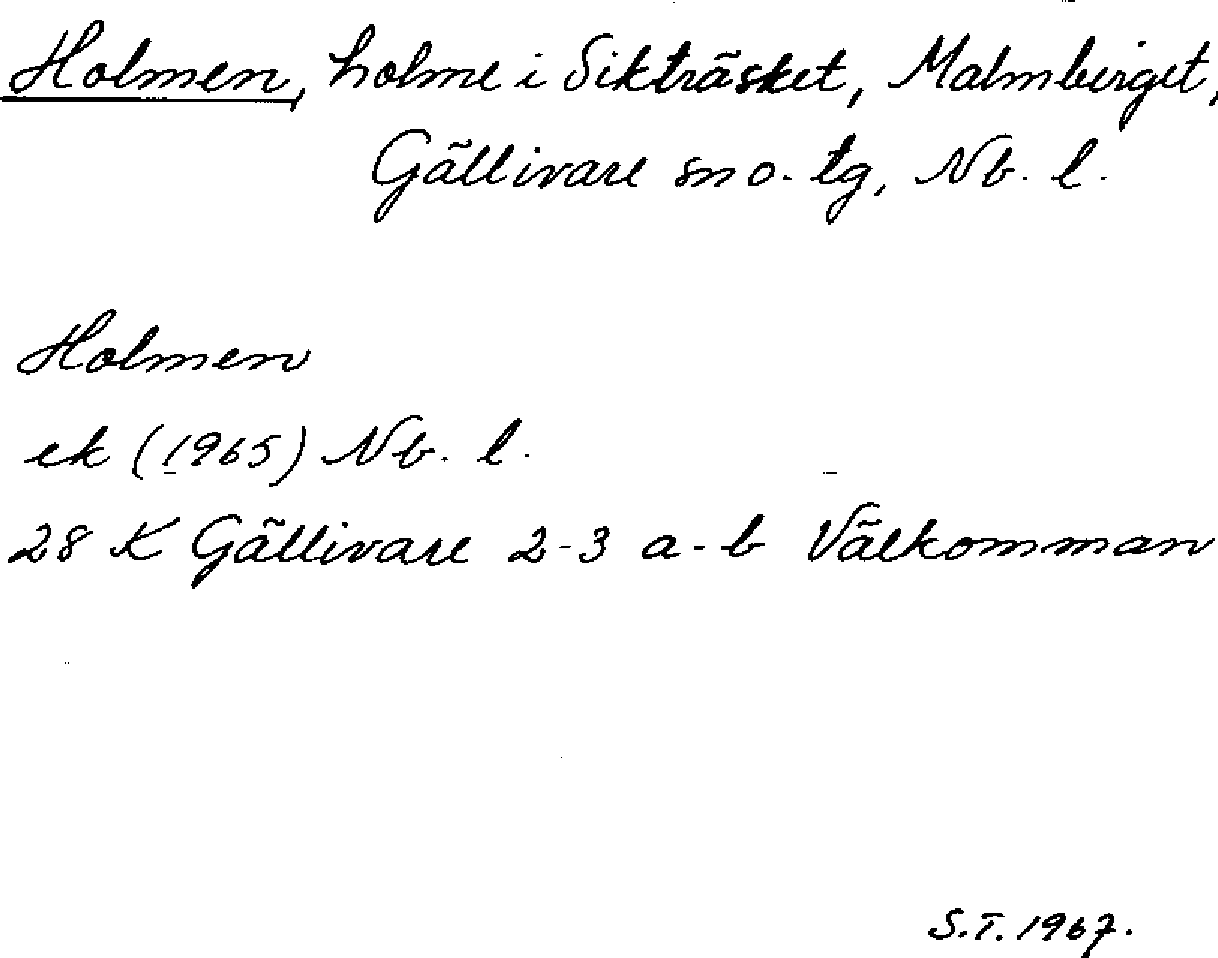 Holmen, holme i Sikträsket, Malmberget,
Gällivare sn o. tg, Nb. l.
Holmen
ek (1965) Nb. l.
28 K Gällivare 2-3 a-b Välkomman
S.T. 1967.